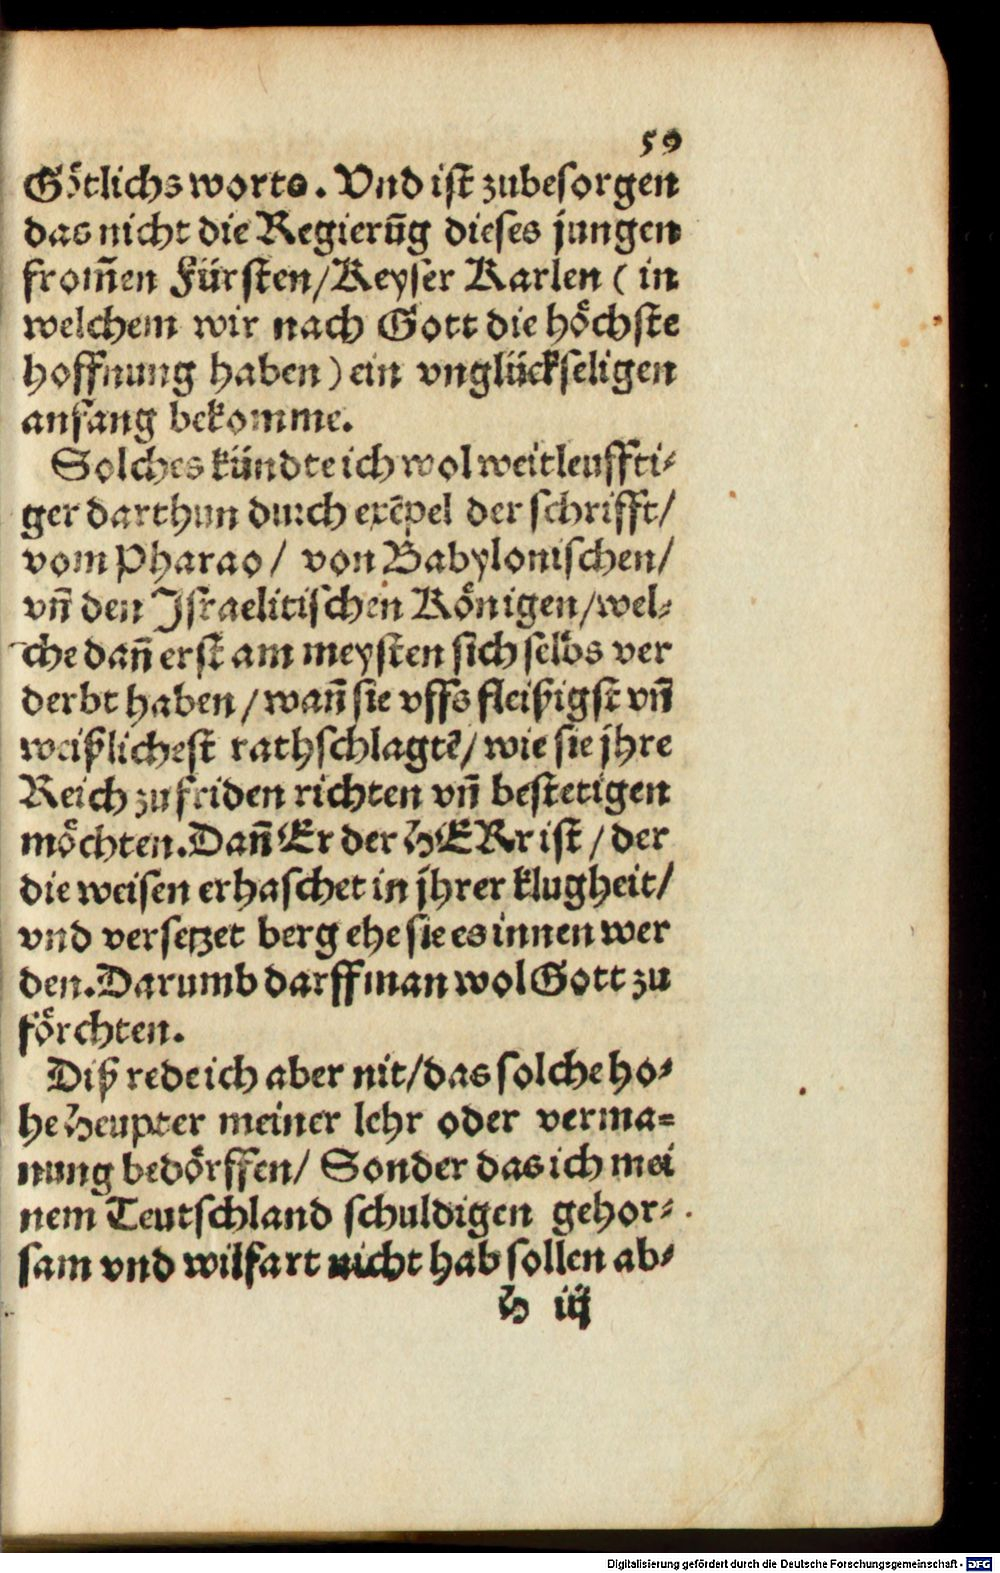 59
Götlichs worts. Vnd ist zubesorgen
das nicht die Regierūg dieses jungen
from̄en Fürsten/Keyser Karlen ( in
welchem wir nach Gott die höchste
hoffnung haben) ein vnglückseligen
anfang bekomme.
Solches kündte ich wol weitleuffti⸗
ger darthun durch exēpel der schrifft/
vom Pharao/ von Babylonischen/
vn̄ den Jsraelitischen Königen/wel⸗
che dan̄ erst am meysten sich selbs ver
derbt haben/wan̄ sie vffs fleißigst vn̄
weißlichest rathschlagtē/wie sie jhre
Reich zu friden richten vn̄ bestetigen
möchten.Dan̄ Er der HERr ist/der
die weisen erhaschet in jhrer klugheit/
vnd versetzet berg ehe sie es innen wer
den.Darumb darff man wol Gott zu
förchten.
Diß rede ich aber nit/das solche ho⸗
he Heupter meiner lehr oder verma⸗
nung bedörffen/ Sonder das ich mei
nem Teutschland schuldigen gehor⸗
sam vnd wilfart nicht hab sollen ab⸗
H iij
Digitalisierung gefördert durch die Deutsche Forschungsgemeinschaft - DFG